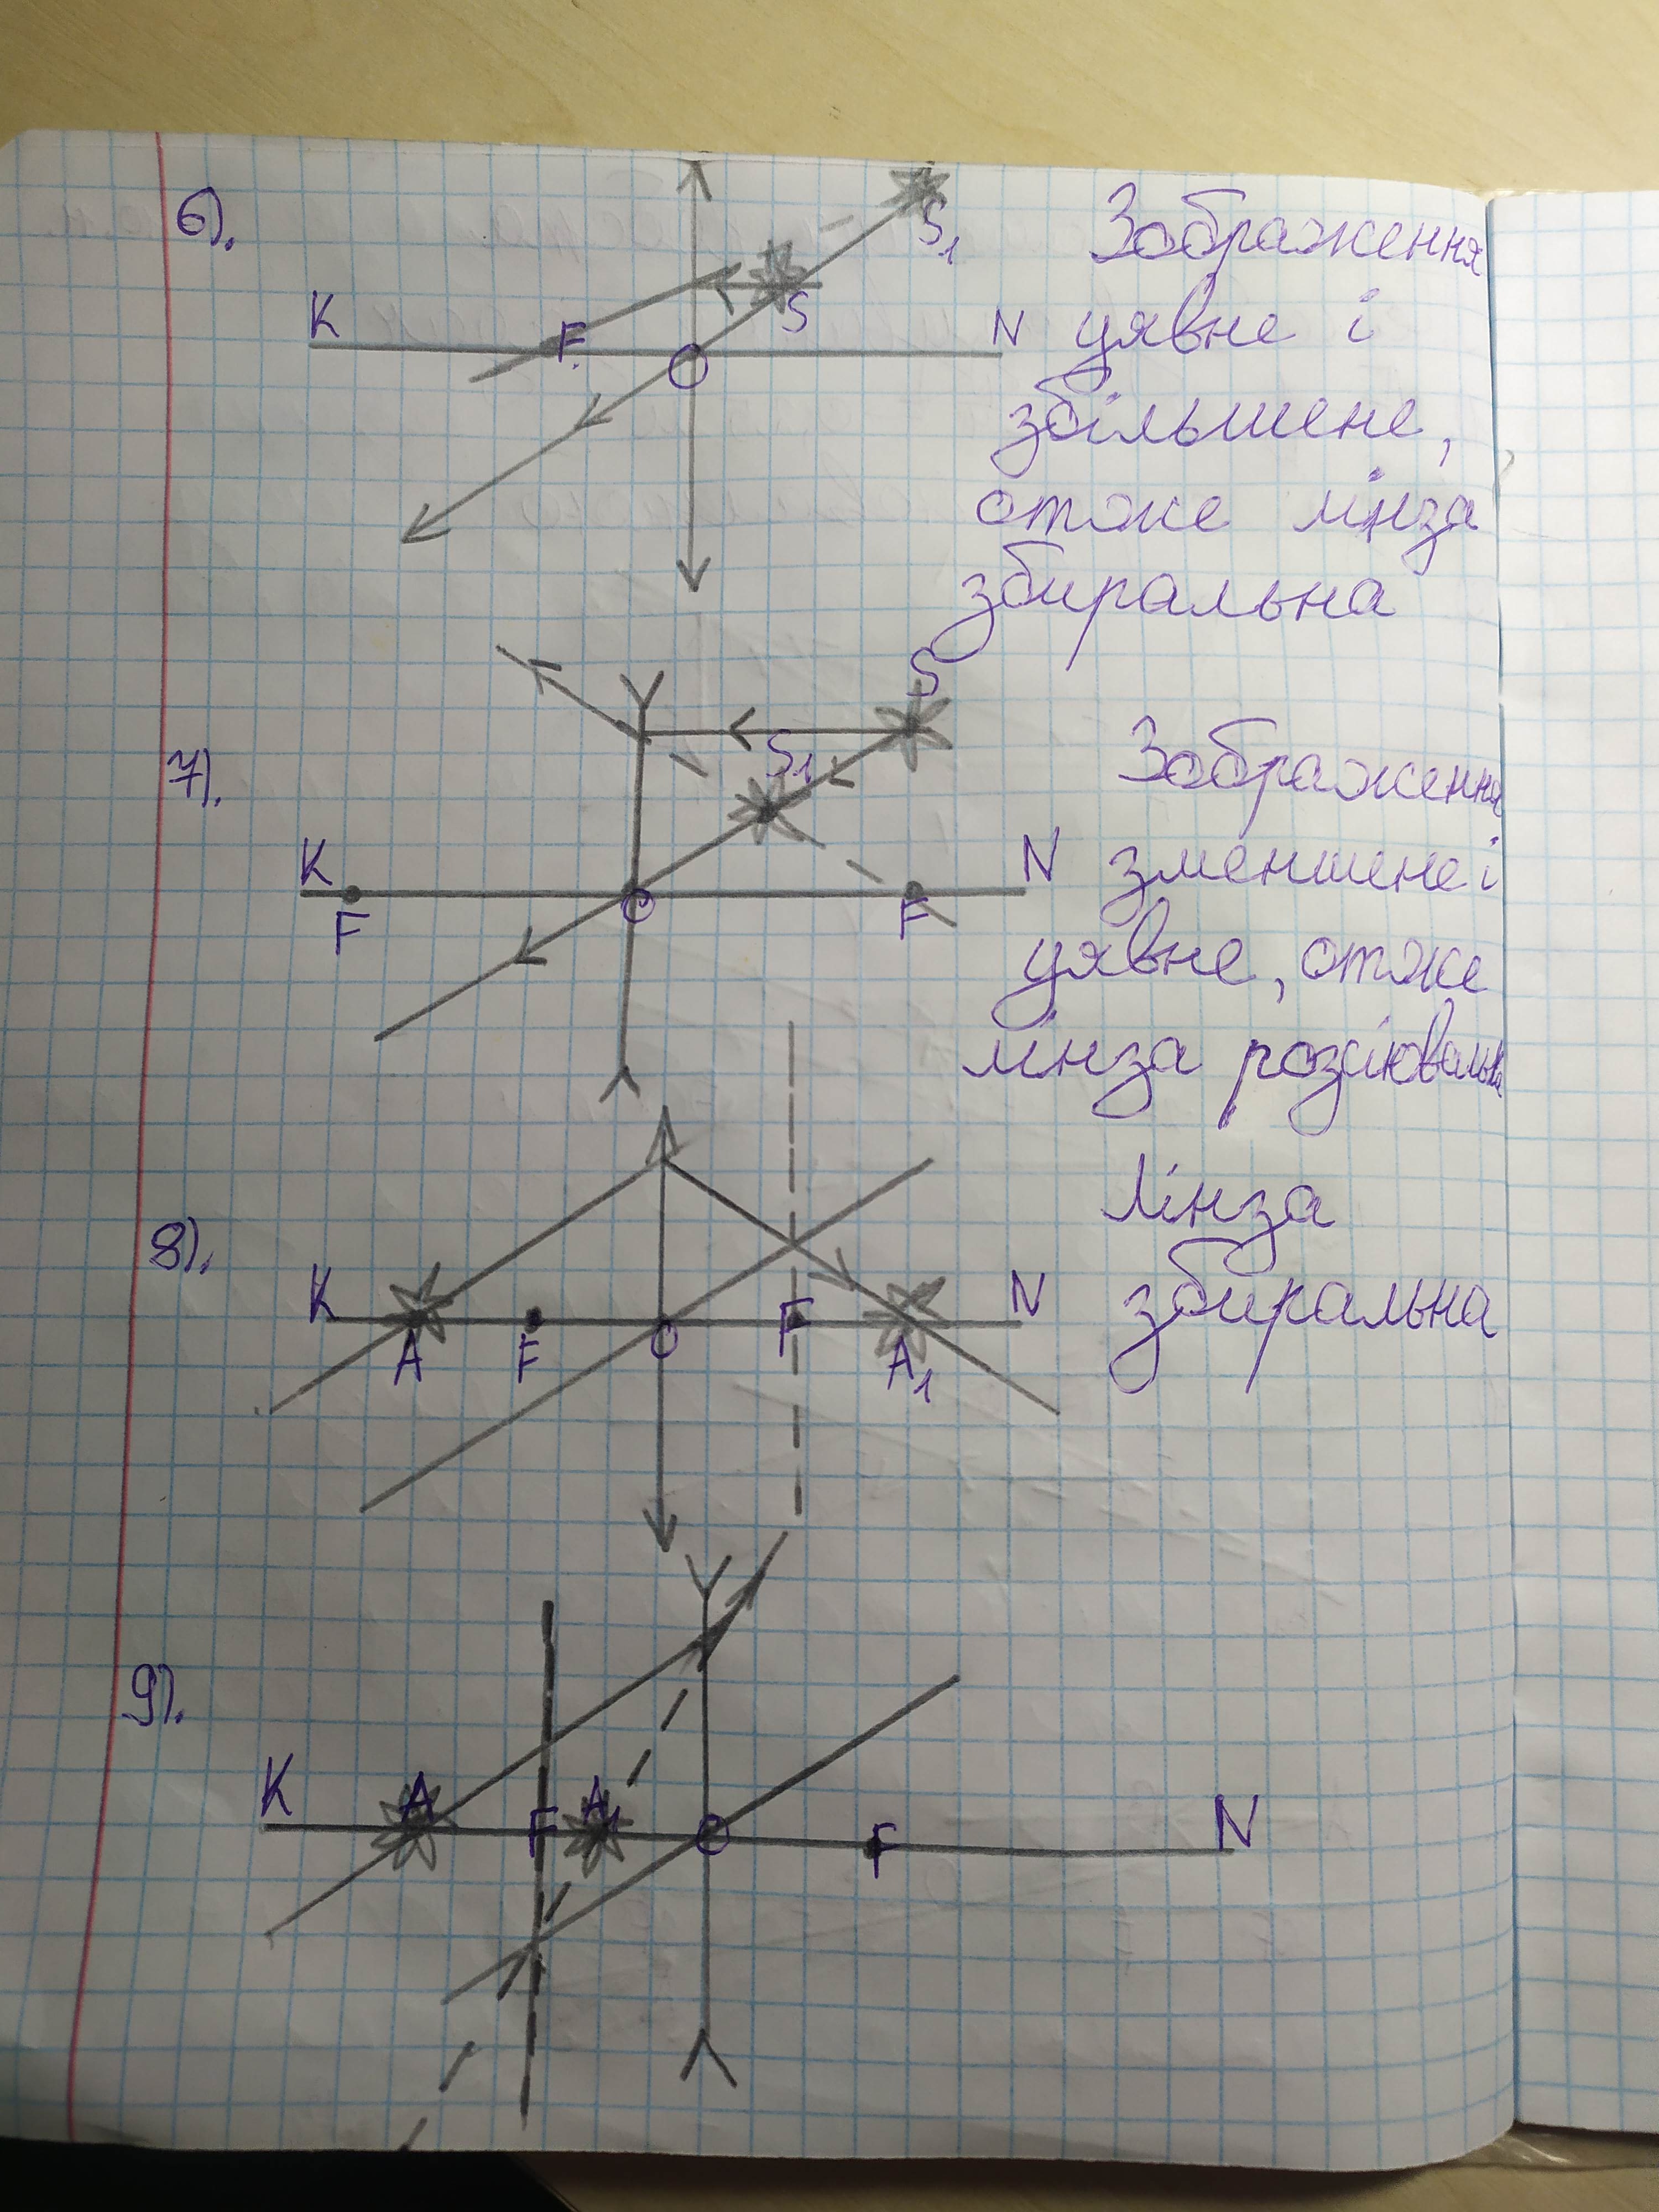 6).
S₁
Зображення
K
F
S
O
N
уявне і
збільшене,
отже лінза
збиральна
7).
S
S₁
Зображення
K
F
O
F
N
зменшене і
уявне, отже
лінза розсіювальна
8).
Лінза
збиральна
K
A
F
O
F
A₁
N
9).
K
A
F
A₁
O
F
N